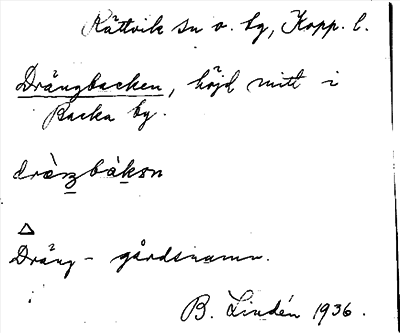 Rättvik sn o. bg, Kopp. l.
Drängbacken, höjd mitt i
Backa by.
dràŋzbàkɘn
△
Dräng - gårdsnamn.
B. Lindén 1936.